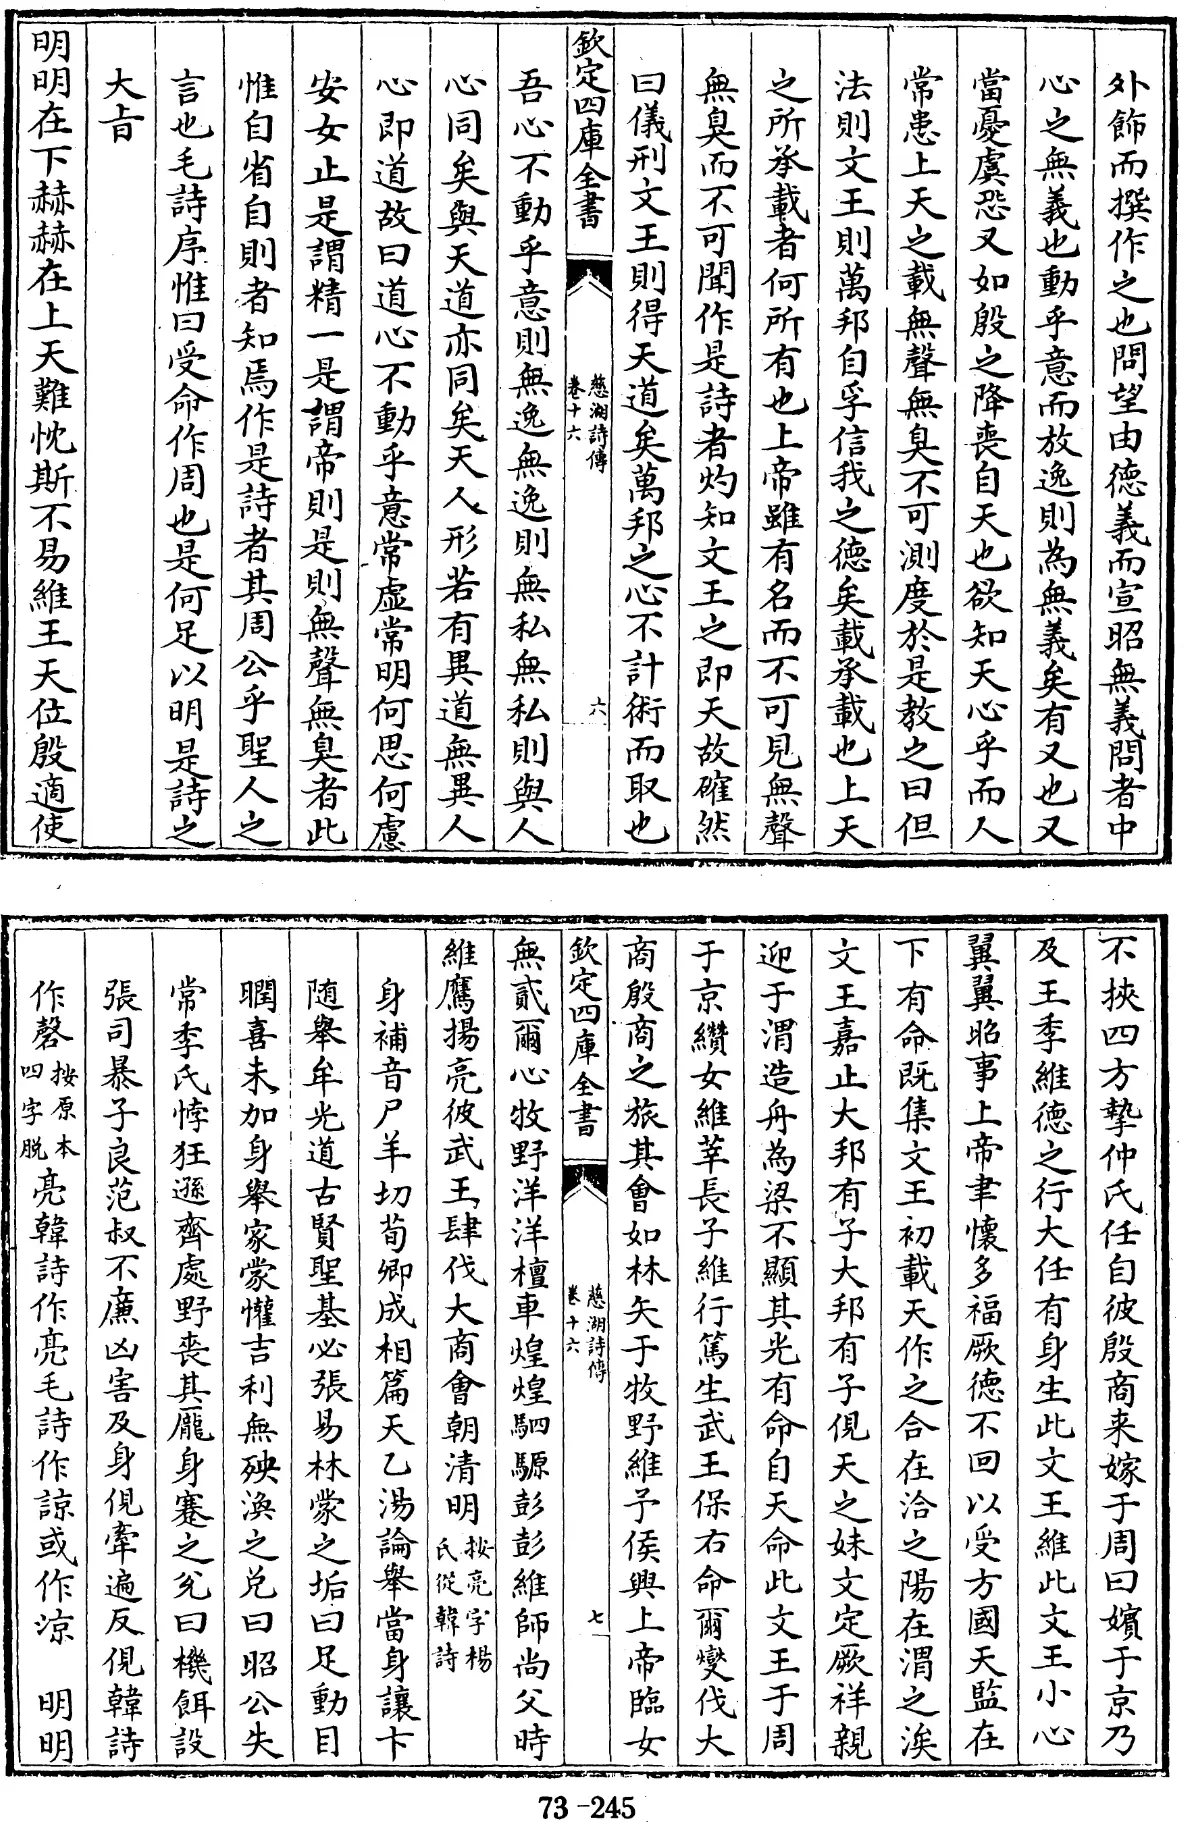 外飾而撰作之也問望由德義而宣昭無義問者中
心之無義也動乎意而放逸則為無義矣有又也又
當憂虞恐又如殷之降喪自天也欲知天心乎而人
常患上天之載無聲無臭不可測度於是教之曰但
法則文王則萬邦自孚信我之德矣載承載也上天
之所承載者何所有也上帝雖有名而不可見無聲
無臭而不可聞作是詩者灼知文王之即天故確然
曰儀刑文王則得天道矣萬邦之心不計術而取也
欽定四庫全書
慈湖詩傳
卷十六
六
吾心不動乎意則無逸無逸則無私無私則與人
心同矣與天道亦同矣天人形若有異道無異人
心即道故曰道心不動乎意常虛常明何思何慮
安女止是謂精一是謂帝則是則無聲無臭者此
惟自省自則者知焉作是詩者其周公乎聖人之
言也毛詩序惟曰受命作周也是何足以明是詩之
大旨
明明在下赫赫在上天難忱斯不易維王天位殷適使
不挾四方摯仲氏任自彼殷商来嫁于周曰嬪于京乃
及王季維德之行大任有身生此文王維此文王小心
翼翼昭事上帝聿懷多福厥德不回以受方國天監在
下有命既集文王初載天作之合在洽之陽在渭之涘
文王嘉止大邦有子大邦有子俔天之妹文定厥祥親
迎于渭造舟為梁不顯其光有命自天命此文王于周
于京纘女維莘長子維行篤生武王保右命爾燮伐大
商殷商之旅其會如林矢于牧野維予侯興上帝臨女
欽定四庫全書
慈湖詩傳
卷十六
七
無貳爾心牧野洋洋檀車煌煌駟騵彭彭維師尚父時
維鷹揚亮彼武王肆伐大商會朝清明按亮字楊氏從韓詩
身補音尸羊切荀卿成相篇天乙湯論舉當身讓卞
随舉牟光道古賢聖基必張易林蒙之垢曰足動目
瞤喜未加身舉家蒙懽吉利無殃渙之兑曰昭公失
常季氏悖狂遜齊處野喪其龐身蹇之兊曰機餌設
張司暴子良范叔不廉凶害及身俔牽遍反俔韓詩
作磬按原本四字脱亮韓詩作亮毛詩作諒或作涼 明明
73-245